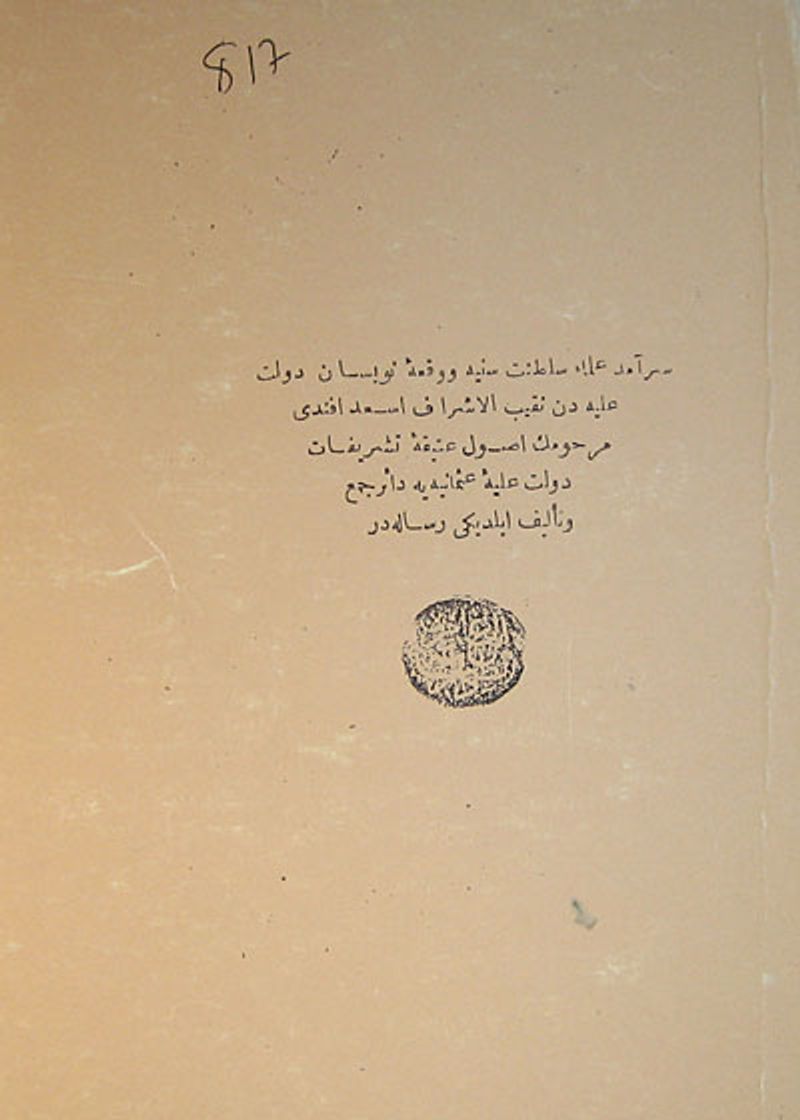 817
سرآمد علماء سلطنت سنیه ووقعهٔ نویسان دولت
علیه دن نقیب الاشراف اسعد افندی
مرحومك اصول عتیقهٔ تشریفات
دولت علیهٔ عثمانیه‌یه دائر جمع
وتألیف ایلدیکی رساله‌در